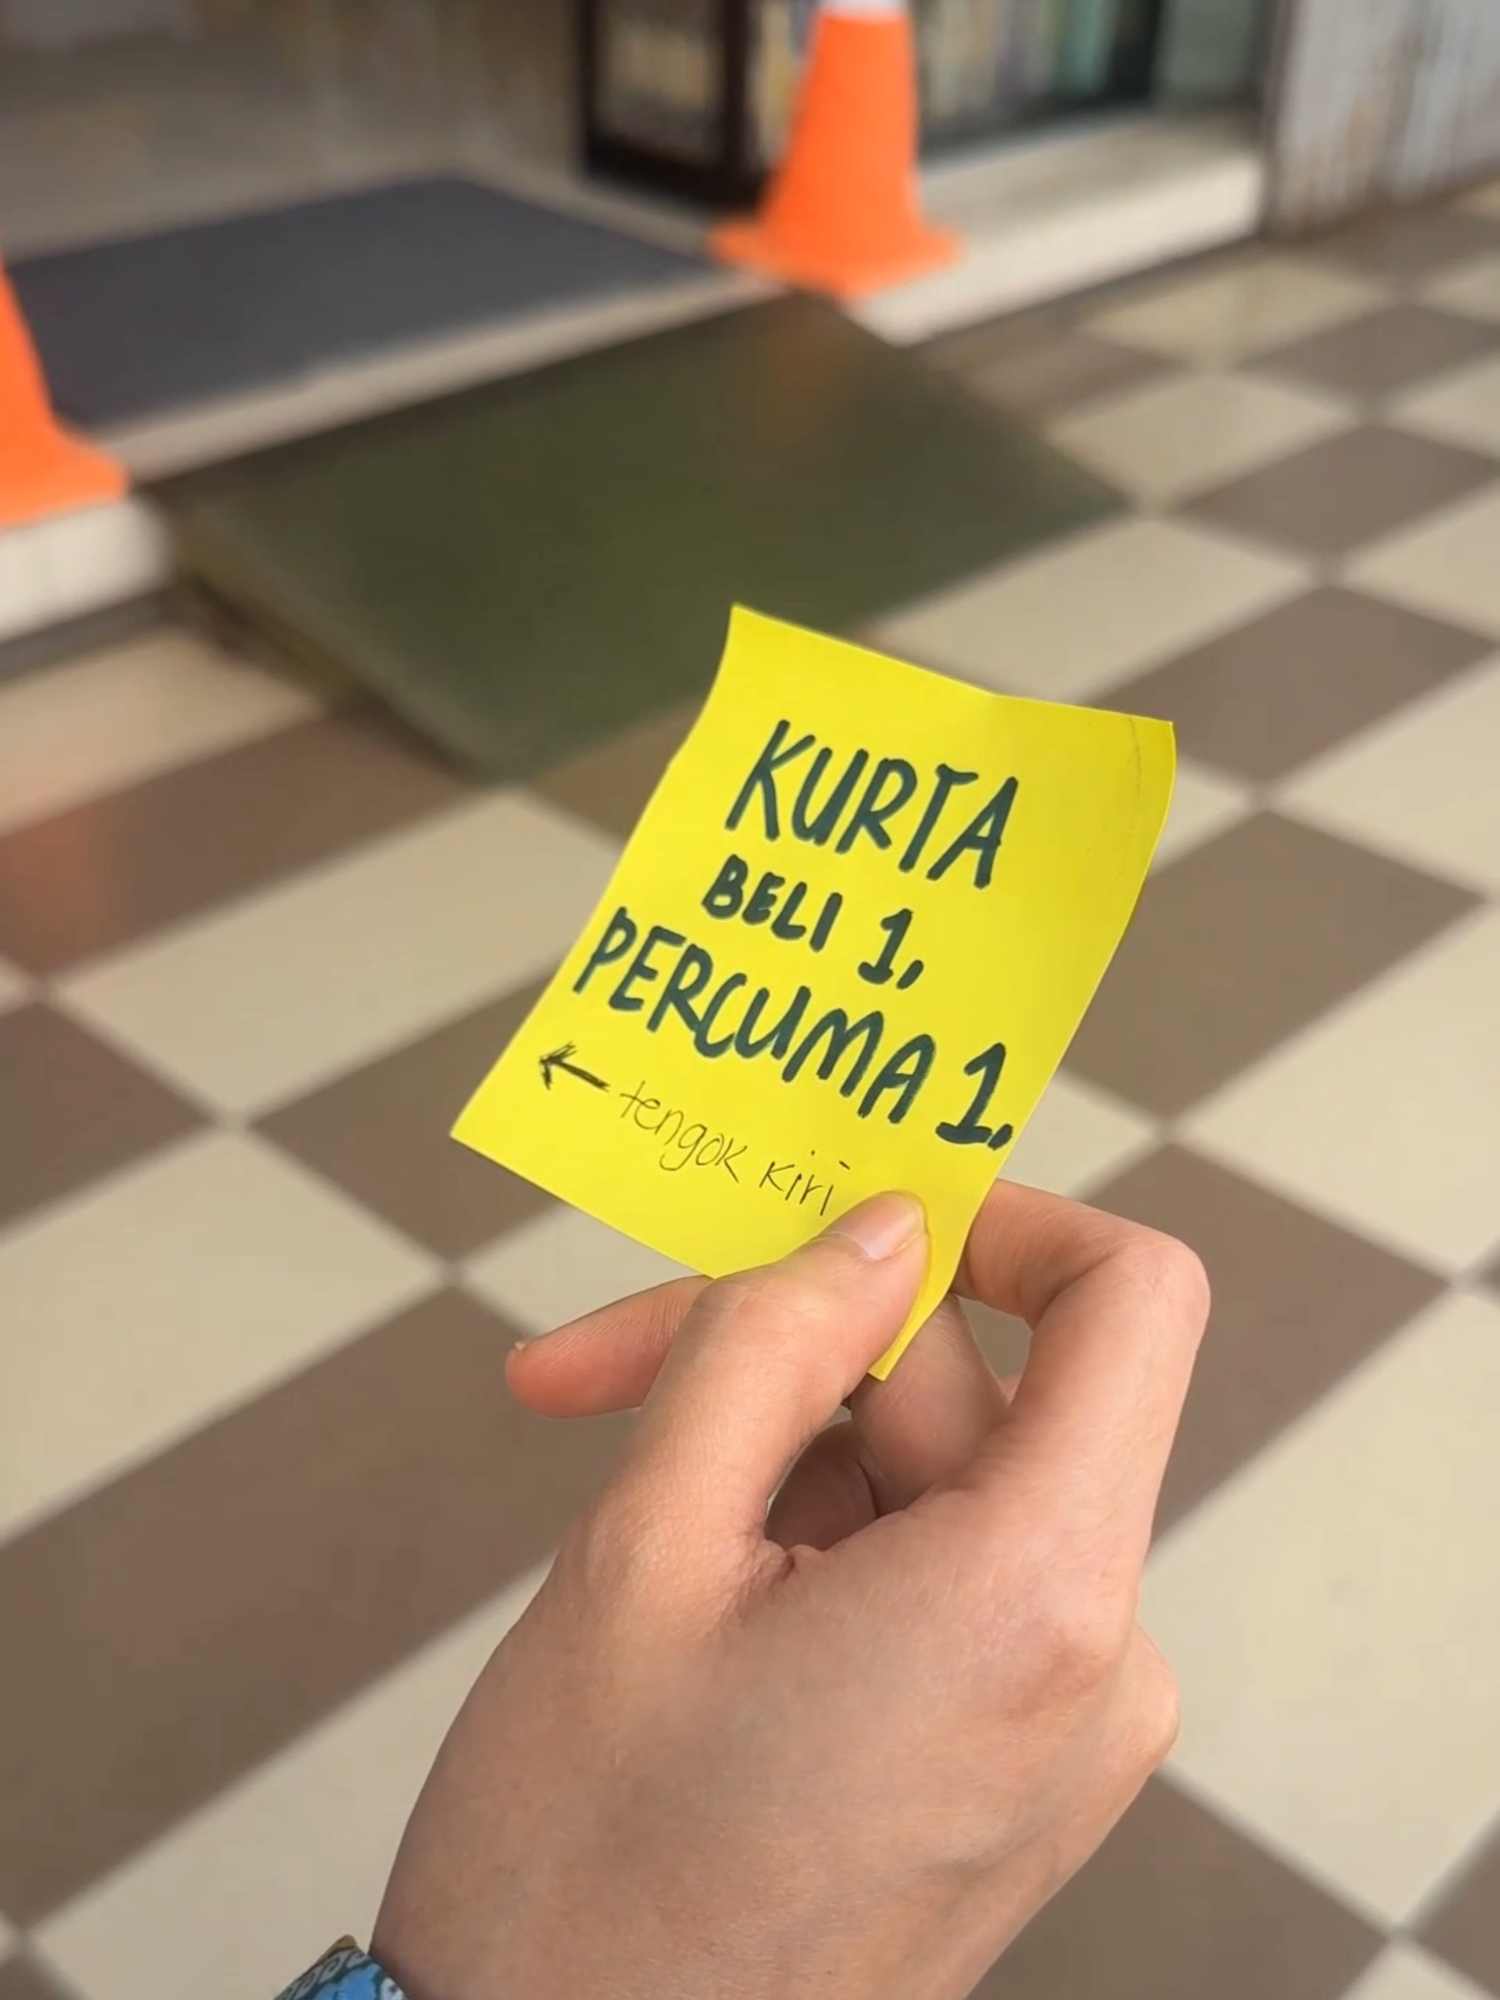 KURTA
BELI 1,
PERCUMA 1.
← tengok kiri